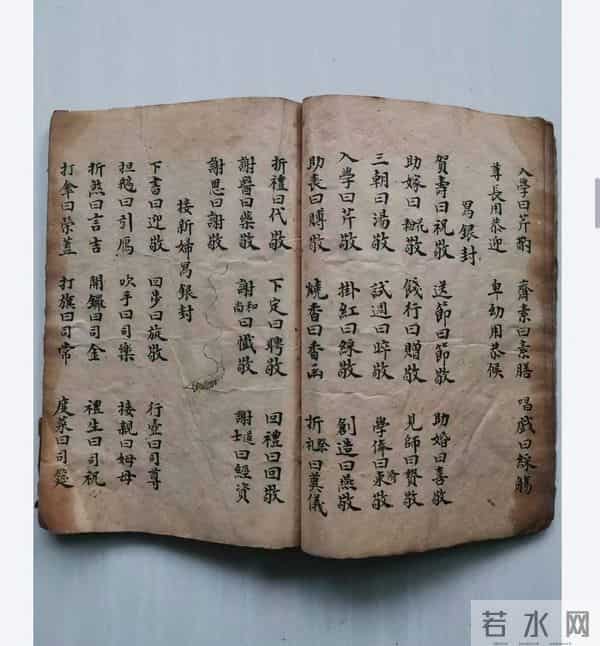 入學曰芹酌 齋素曰素膳 唱戲曰綵觴
尊長用恭迎 卑幼用恭候
寫銀封
賀壽曰祝敬 送節曰節敬 助婚曰喜敬
助嫁曰花粉敬 餞行曰贈敬 見師曰贄敬
三朝曰湯敬 試週曰晬敬 學俸曰束脩敬
入學曰芹敬 掛紅曰綵敬 創造曰燕敬
助喪曰賻敬 燒香曰香函 折祭礼曰奠儀
折禮曰代敬 下定曰聘敬 回禮曰回敬
謝醫曰藥敬 謝和尚曰懺敬 謝道士曰經資
謝恩曰謝敬
接新婦寫銀封
下書曰迎敬 回步曰旋敬 行壺曰司尊
担鵝曰引鴈 吹手曰司樂 接親曰姆母
折煞曰言吉 開鑼曰司金 禮生曰司祝
打傘曰榮蓋 打旗曰司常 度菜曰司
若水网
RUOSHUI.COM